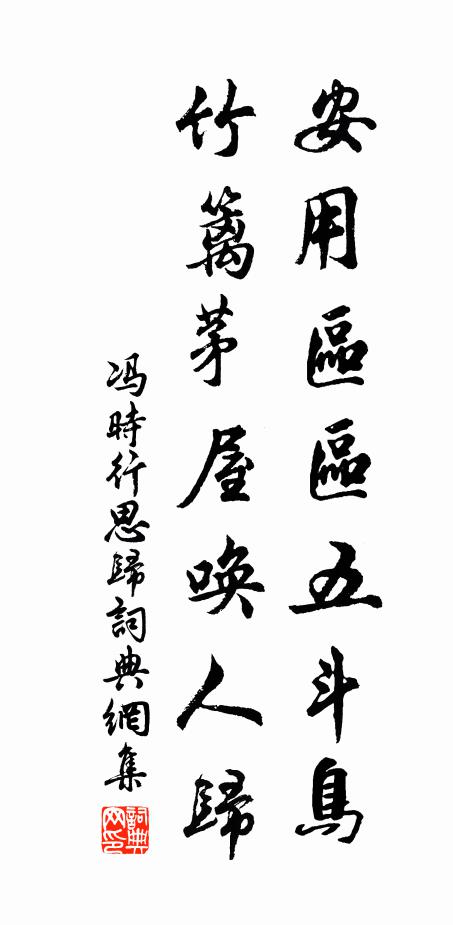 安用區區五斗爲
竹籬茅屋喚人歸
冯時行思歸詞典網集
詞典網印